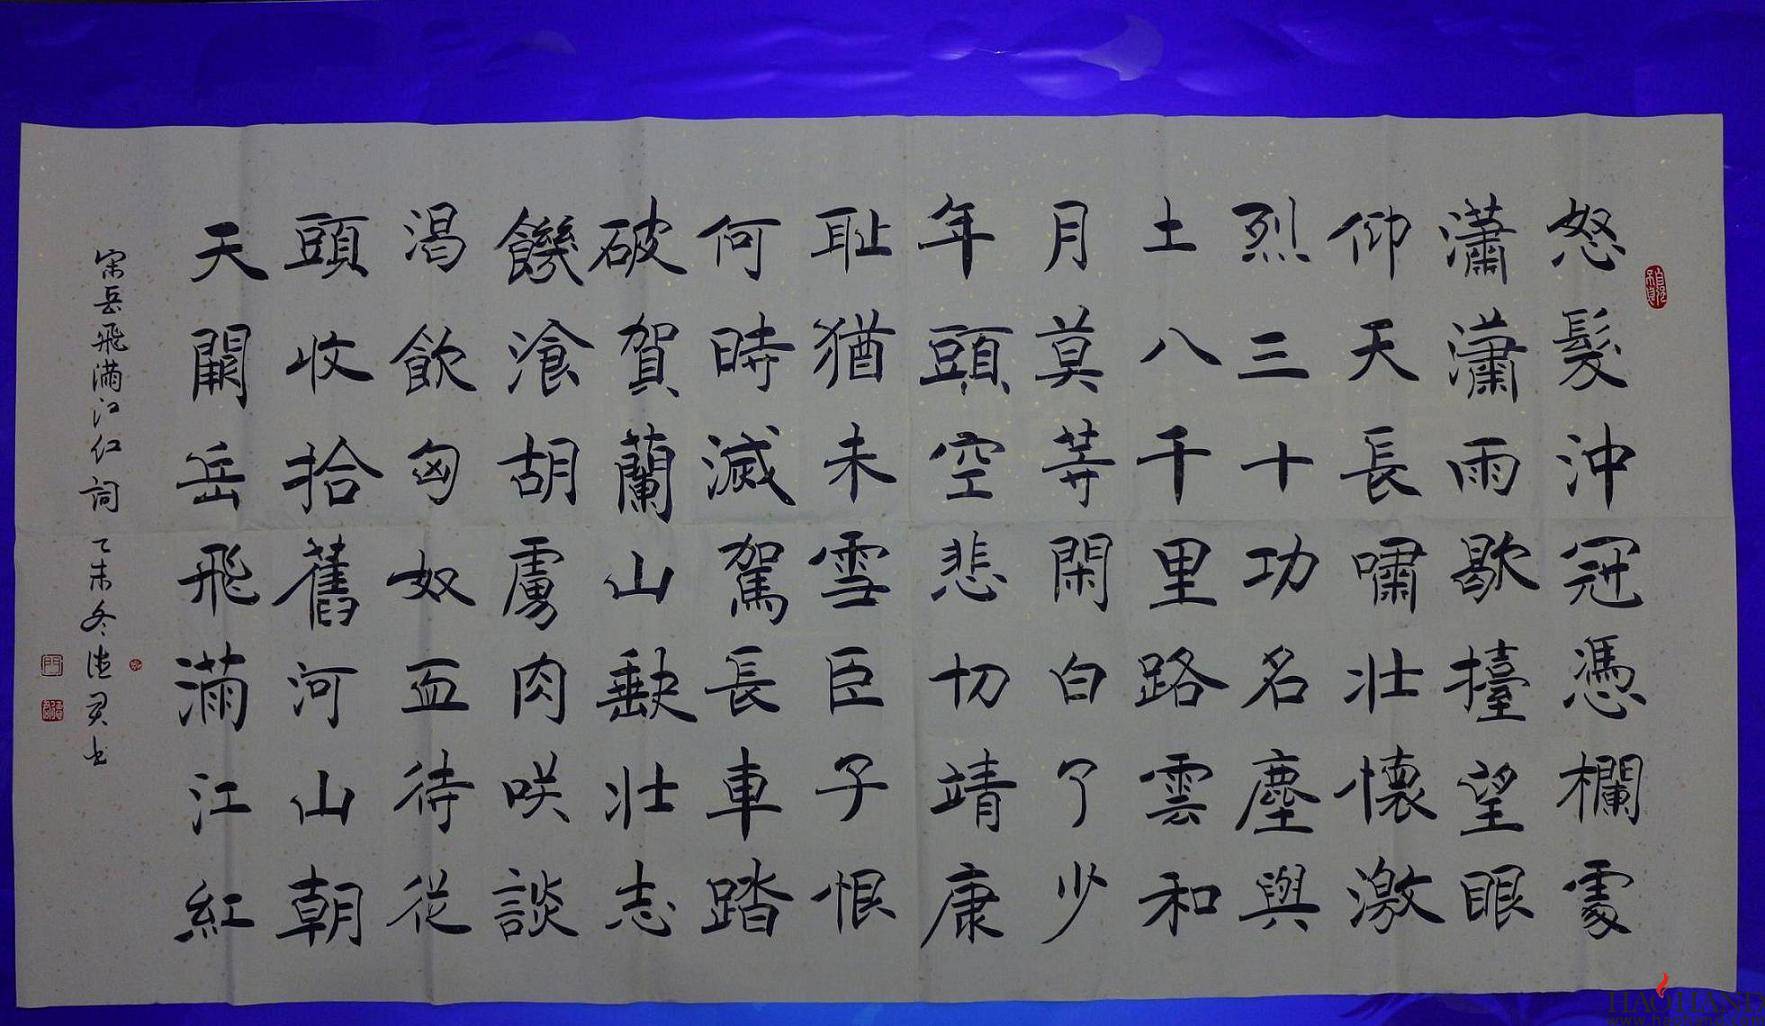 怒髮沖冠憑欄處
瀟瀟雨歇擡望眼
仰天長嘯壯懷激
烈三十功名塵與
土八千里路雲和
月莫等閑白了少
年頭空悲切靖康
耻猶未雪臣子恨
何時滅駕長車踏
破賀蘭山缺壯志
饑飡胡虜肉咲談
渴飲匈奴血待從
頭收拾舊河山朝
天闕岳飛滿江紅
宋岳飛滿江红詞 乙未冬德君书
HAOHAND
www.haohand.com